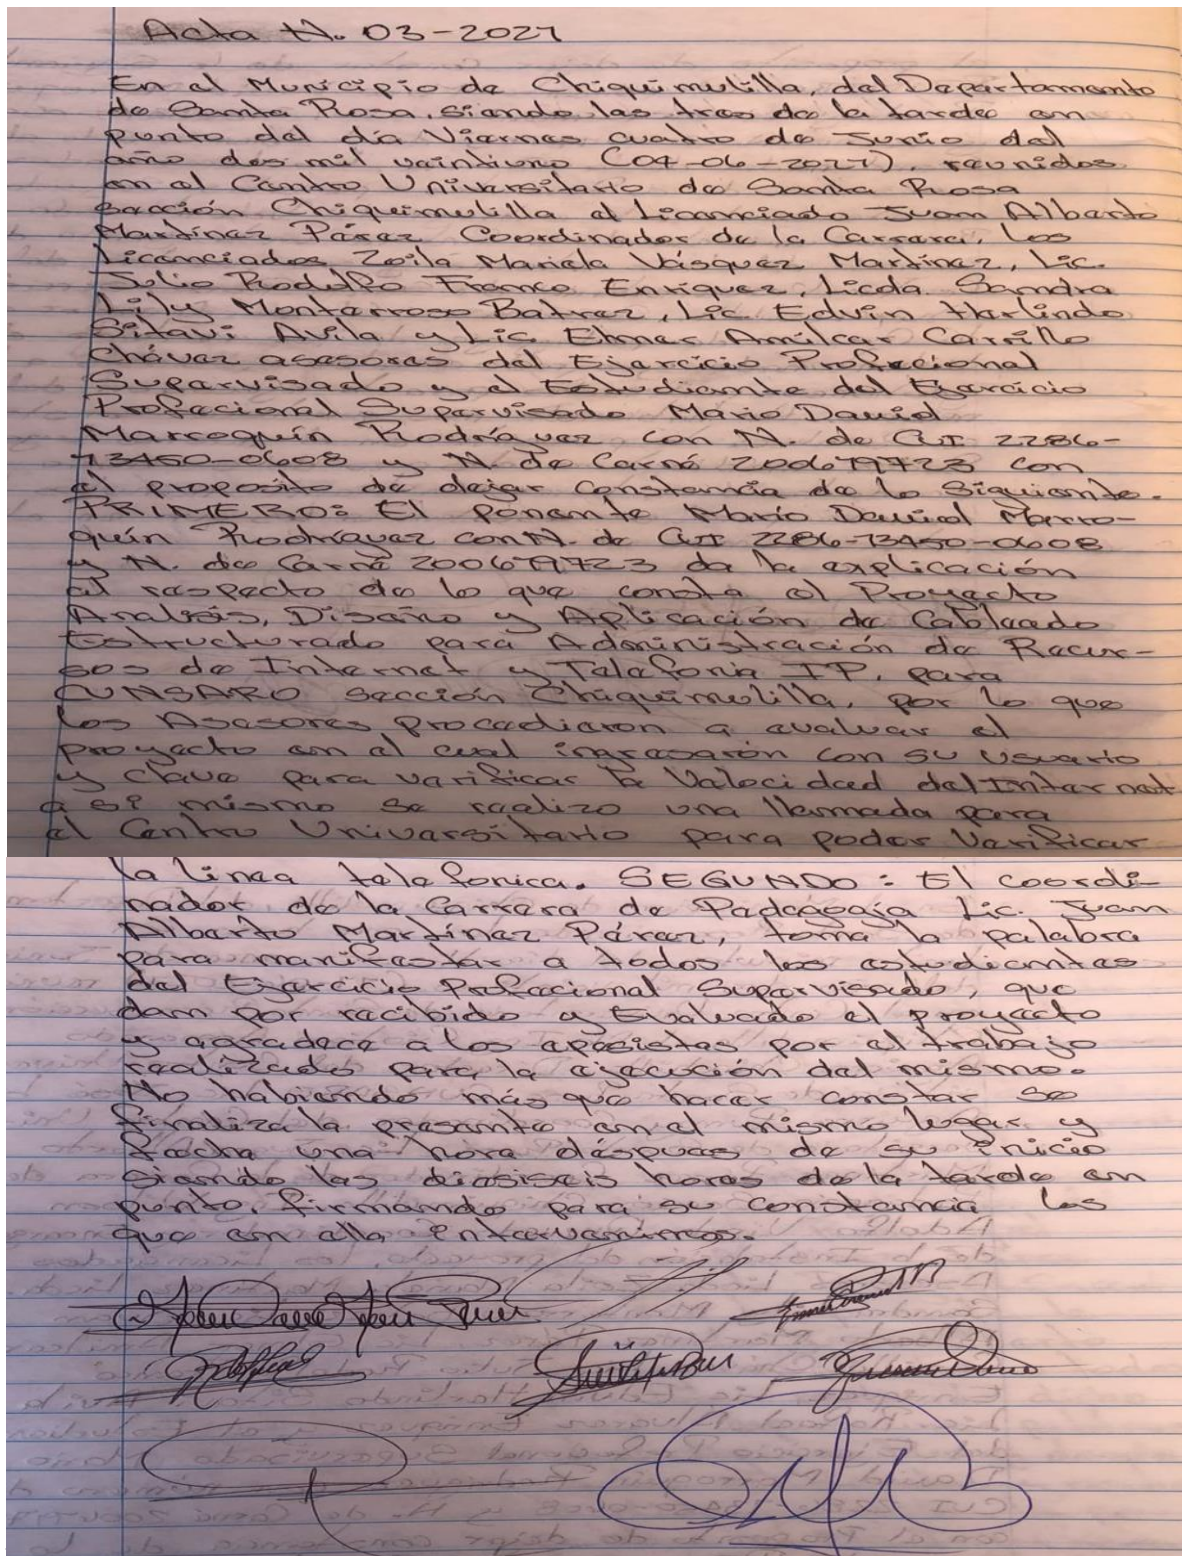 Acta N. 03-2021
En el Municipio de Chiquimulilla, del Departamento
de Santa Rosa, siendo las tres de la tarde en
punto del día Viernes cuatro de Junio del
año dos mil veintiuno (04-06-2021), reunidos
en el Centro Universitario de Santa Rosa
sección Chiquimulilla el Licenciado Juan Alberto
Martínez Pérez Coordinador de la Carrera, los
Licenciados Zoila Mariela Vásquez Martínez, Lic.
Julio Rodolfo Franco Enríquez, Licda. Sandra
Lily Monterroso Batrez, Lic Edvin Harlindo
Sitavi Avila y Lic Elmer Amilcar Carrillo
Chávez asesores del Ejercicio Profecional
Supervisado y el Estudiante del Ejercicio
Profecional Supervisado Mario David
Marroquín Rodríguez con N. de CUI 2286-
13450-0608 y N. de Carné 200679723 con
el proposito de dejar constancia de lo Siguiente.
PRIMERO: El ponente Mario David Marro-
quín Rodríguez con N. de CUI 2286-13450-0608
y N. de Carné 200679723 da la explicación
al respecto de lo que consta el Proyecto
Analisis, Diseño y Aplicación de Cableado
Estructurado para Administración de Recur-
sos de Internet y Telefonia IP, para
CUNSARO sección Chiquimulilla, por lo que
los Asesores procedieron a evaluar el
proyecto en el cual ingresarón con su usuario
y clave para verificar la Velocidad del Internet
así mismo se realizo una llamada para
el Centro Universitario para poder Verificar
la linea telefonica. SEGUNDO: El coordi-
nador de la Carrera de Padegogía Lic. Juan
Alberto Martínez Pérez, toma la palabra
para manifestar a todos los estudiantes
del Ejercicio Profecional Supervisado, que
dam por recibido y Evaluado el proyecto
y agradece a los epesistas por el trabajo
realizado para la ejecución del mismo.
No habiendo más que hacer constar se
finaliza la presente en el mismo lugar y
fecha una hora déspues de su inicio
siendo las diesiseis horas de la tarde en
punto, firmando para su constancia los
que en ella intervenimos.